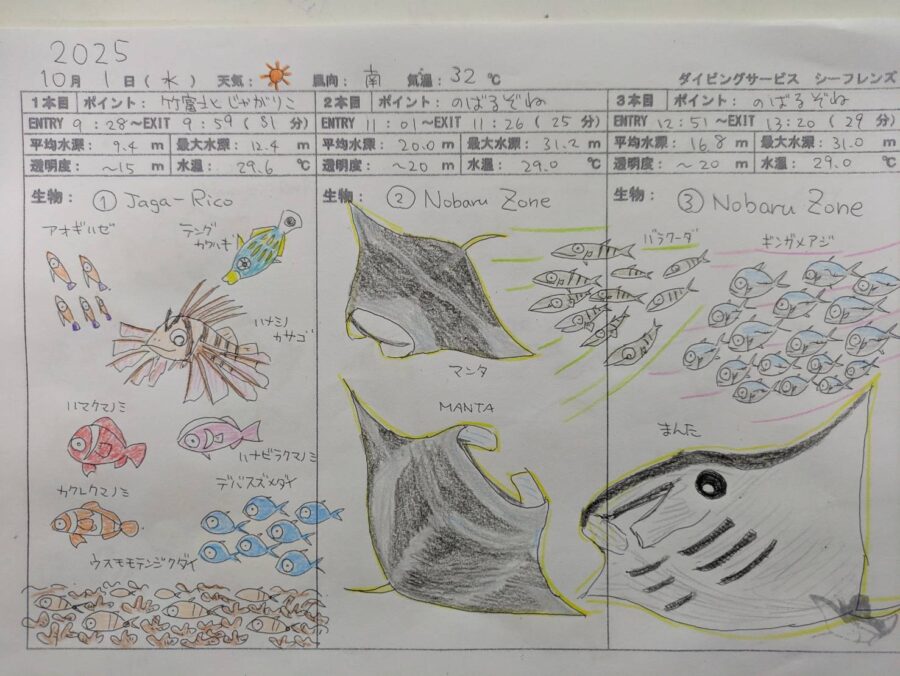 2025
10月 1日(水) 天気: 風向: 南 気温: 32℃ ダイビングサービス シーフレンズ
1本目 ポイント: 竹富士とじゃがりこ
ENTRY 9:28~EXIT 9:59(31分)
平均水深: 9.4 m 最大水深: 12.4 m
透明度: ~15 m 水温: 29.6 ℃
生物: ① Jaga-Rico
アオギハゼ
テングカワハギ
ハナミノカサゴ
ハマクマノミ
ハナビラクマノミ
カクレクマノミ
デバスズメダイ
ウスモモテンジクダイ
2本目 ポイント: のばるぞね
ENTRY 11:01~EXIT 11:26(25分)
平均水深: 20.0 m 最大水深: 31.2 m
透明度: ~20 m 水温: 29.0 ℃
生物: ② Nobaru Zone
バラクーダ
マンタ
MANTA
3本目 ポイント: のばるぞね
ENTRY 12:51~EXIT 13:20(29分)
平均水深: 16.8 m 最大水深: 31.0 m
透明度: ~20 m 水温: 29.0 ℃
生物: ③ Nobaru Zone
ギンガメアジ
まんた